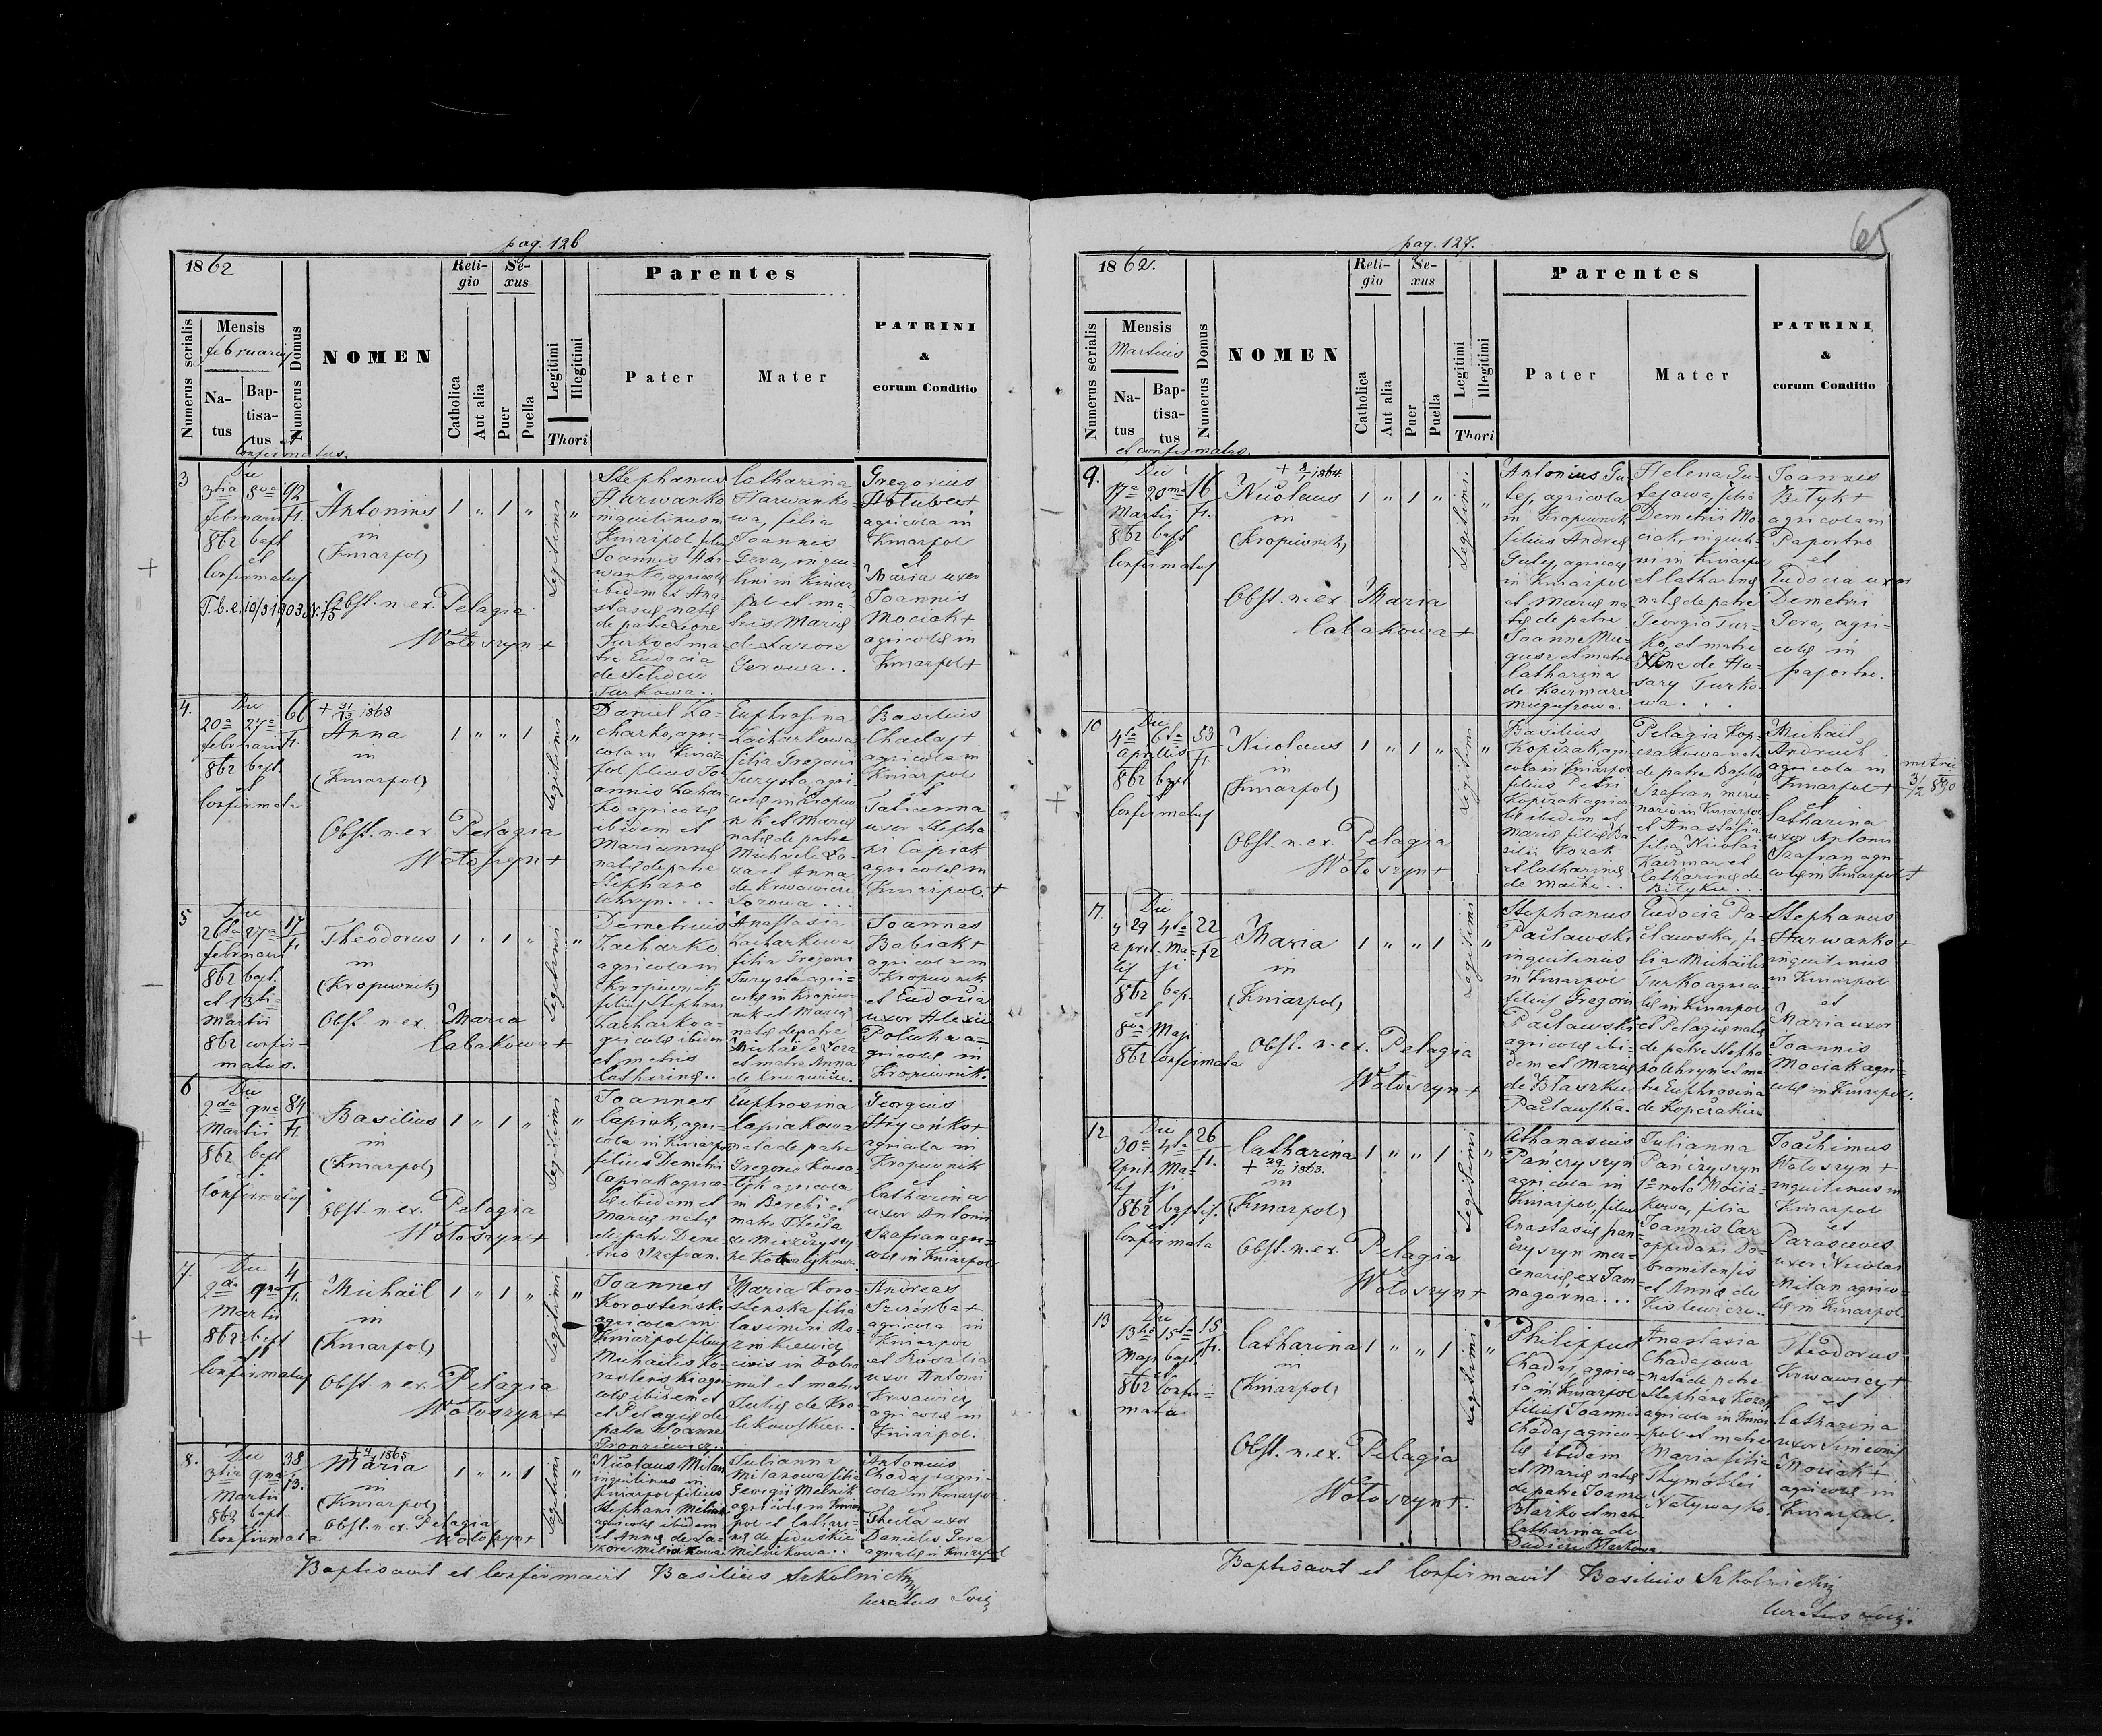 pag. 126
1862
Numerus serialis
Mensis
februarius
Natus
Baptisatus
et Confirmatus.
Numerus Domus
NOMEN
Religio
Catholica
Aut alia
Sexus
Puer
Puella
Legitimi
Illegitimi
Thori
Parentes
Pater
Mater
PATRINI
&
eorum Conditio
3
Die
3tia 8va 92
februarii
862 bapt
et
Confirmatus
T.b.e. 10/3 1903
Antonius
in
(Kniarpol)
Obst. n. ex. Pelagia
Wołoszyn +
1 " 1 "
Legitimi
"
Stephanus
Harwanko
inquilinus in
Kniarpol, filius
Joannis Har-
wanko, agricolę
ibidem et Ana-
stasię natę
de patre Leone
Turko et ma-
tre Eudocia
de
Turkowa..
Catharina
Harwanko-
wa, filia
Joannis
Gera, inqui-
lini in Kniar-
pol et ma-
tris Marię
de Lazore
Gerowa..
Gregorius
Hołubec +
agricola in
Kniarpol
et
Maria uxor
Joannis
Mociak +
agricolę in
Kniarpol +
4.
Die
20a 27a 66
februarii
862 bapt
et
Confirmata
+ 31/3 1868
Anna
in
(Kniarpol)
Obst. n. ex. Pelagia
Wołoszyn +
1 " " 1
Legitimi
"
Daniel Za-
charko, agri-
cola in Kniar-
pol filius Jo-
annis Zachar-
ko agricolę
ibidem et
Mariannę
natę de patre
Stephano
Uhryn....
Euphrosina
Zacharkowa
filia Gregorii
Turysta, agri-
colę in Kropiw-
nik et Marię
natę de patre
Michaele Lo-
za et Anna
de Krwawicze
Lozowa...
Basilius
Chaday +
agricola in
Kniarpol
et
Tatianna
uxor Stepha
ni Capiak
agricolę in
Kniarpol. +
5
Die
26ta 27a 17
februarii
862 bapt.
et 13ti-
Martii
862 confir-
matus.
Theodorus
in
(Kropiwnik)
Obst. n. ex. Maria
Cabakowa +
1 " 1 "
Legitimi
"
Demetrius
Zacharko
agricola in
Kropiwnik
filius Stephani
Zacharko a-
gricolę ibidem
et matris
Catharinę..
Anastasia
Zacharkowa
filia Gregorii
Turysta agri-
colę in Kropiw-
nik et Marię
natę de patre
Michaele Loza
et matre Anna
de Krwawicze.
Joannes
Babiak +
agricola in
Kropiwnik
et Eudocia
uxor Alexii
Poluha a-
gricolę in
Kropiwnik.
6
Die
2da 9na 84
Martii
862 bapt
et
Confirmatus
Basilius
in
(Kniarpol)
Obst. n. ex. Pelagia
Wołoszyn +
1 " 1 "
Legitimi
"
Joannes
Capiak, agri-
cola in Kniarpol
filius Demetrii
Capiak agrico-
lę ibidem et
Marię natę
de patre Deme-
trio Szafran.
Euphrosina
Capiakowa
nata de patre
Gregorio Kowa-
lyk agricola
in Berehi et
matre Thecla
Georgius
Hrycko +
agricola in
Kropiwnik
et
Catharina
uxor Antonii
Szafran agri-
colę in Kniarpol
7
Die
2da 9na 4
Martii
862 bapt
et
Confirmatus
Michaël
in
(Kniarpol)
Obst. n. ex. Pelagia
Wołoszyn +
1 " 1 "
Legitimi
"
Joannes
Korosteński
agricola in
Kniarpol filius
Michaëlis Ko-
rosteński agri-
colę ibidem et
et Pelagię de
patre Joanne
Maria Koro-
stenska filia
Casimiri Ro-
zinkiewicz
civis in Dobro
mil et matris
Julię de Kro-
likowskie..
Andreas
Szczerba +
agricola in
Kniarpol
et Rosalia
uxor Antonii
Krwawicz
agricolę in
Kniarpol.
8.
Die
3tia 9na 38
Martii
862 bapt.
et
Confirmata.
+ 1865
Maria
in
(Kniarpol)
Obst. n. ex. Pelagia
Wołoszyn +
1 " " 1
Legitimi
"
Nicolaus Milan
inquilinus in
Kniarpol filius
Stephani Milan
agricolę ibidem
et Annę de La-
zore
Julianna
Milanowa filia
Georgii Melnik
agricolę in Kniar
pol et Cathari-
nę de Feduskie
Melnikowa..
Antonius
Chaday agri-
cola in Kniarpol.
et
Thecla uxor
Danielis Gera
agricolę in Kniarpol
Baptisavit et Confirmavit Basilius Szkolnicki
Curatus Loci
65
pag. 127.
1862.
Numerus serialis
Mensis
Martius
Natus
Baptisatus
et confirmatus.
Numerus Domus
NOMEN
Religio
Catholica
Aut alia
Sexus
Puer
Puella
Legitimi
Illegitimi
Thori
Parentes
Pater
Mater
PATRINI
&
eorum Conditio
9.
Die
17a 20ma 16
Martii
862 bapt
et
Confirmatus
+ 8/1 1864
Nicolaus
in
(Kropiwnik)
Obst. n. ex Maria
Cabakowa +
1 " 1 "
Legitimi.
"
Antonius Gu-
łej, agricola
in Kropiwnik
filius Andreę
Guły, agricolę
in Kniarpol
et Marię na-
tę de patre
Joanne
et matre
Catharina
de Kaczmare
Helena Gu-
łejowa, filia
Demetrii Mo
ciak, inquili-
ni in Kniarpol
et Catharinę
natę de patre
Georgio Tur-
ko, et matre
Xene de Hu-
sary Turko-
wa...
Joannes
Bityk +
agricola in
Paportno
et
Eudocia uxor
Demetrii
Gera, agri-
colę in
paportno.
10
Die
4ta 6ta 53
Aprilis
862 bapt
et
Confirmatus
Nicolaus
in
(Kniarpol)
Obst. n. ex. Pelagia
Wołoszyn +
1 " 1 "
Legitimi
"
Basilius
Kopczak, agri
cola in Kniarpol
filius Petri
Kopczak agrico
lę ibidem et
Marię filię Ba-
silii Kozak
et Catharinę
de Maćke..
Pelagia Kop-
czakowa nata
de patre Basilio
Szafran merce-
nario in Kniarpol
et Anastasia
filia Nicolai
Kaczmar et
Catharinę de
Bityku...
Michaël
Andruch
agricola in
Kniarpol +
et
Catharina
uxor Antonii
Szafran agri-
colę in Kniarpol +
11.
Die
29 4ta 22
April. Ma-
lis ji
862 bap.
et
8va Maji
862 Confirmata
Maria
in
(Kniarpol)
Obst. n. ex. Pelagia
Wołoszyn +
1 " " 1
Legitimi
"
Stephanus
Pacławski
inquilinus
in Kniarpol
filius Gregorii
Pacławski
agricolę ibi-
dem et Marię
de Błaszku
Pacławska.
Eudocia Pa-
cławska, fi-
lia Michaëlis
Turko agrico-
lę in Kniarpol
et Pelagię natę
de patre Stepha
no Uhryn et ma
tre Euphrosina
de Kopczakiw
Stephanus
Harwanko +
inquilinus
in Kniarpol
et
Maria uxor
Joannis
Mociak agri-
colę in Kniarpol.
12
Die
30a 4ta 26
April. Ma-
lis ji
862 baptis.
et
Confirmata
Catharina
+ 29/10 1863.
in
(Kniarpol)
Obst. n. ex. Pelagia
Wołoszyn +
1 " " 1
Legitimi
"
Athanasius
Pańczyszyn
agricola in
Kniarpol, filius
Anastasię Pan-
czyszyn mer-
cenarię ex Jam-
nagórna...
Julianna
Pańczyszyn
1o voto
kowa, filia
Joannis Car
oppidani Do-
bromilensis
et Annę de
Joachimus
Wołoszyn +
inquilinus in
Kniarpol
et
Parasceves
uxor Nicolai
Milan agrico-
lę in Kniarpol
13
Die
13tia 15ta 15.
Maji bapt.
et
862 Confir-
mata
Catharina
in
(Kniarpol)
Obst. n. ex. Pelagia
Wołoszyn +.
1 " " 1
Legitimi
"
Philippus
Chaday agrico-
la in Kniarpol
filius Joannis
Chaday agrico-
lę ibidem
et Marię natę
de patre Joanne
Błażko et matre
Catharina de
Anastasia
Chadajowa
nata de patre
Stephano Kozak
agricola in Kniar
pol et matre
Maria filia
Thymothei
Natywajko.
Theodorus
Krwawicz +
et
Catharina
uxor Simeonis
Mociak +
agricolę in
Kniarpol.
Baptisavit et Confirmavit Basilius Szkolnicki
Curatus Loci.